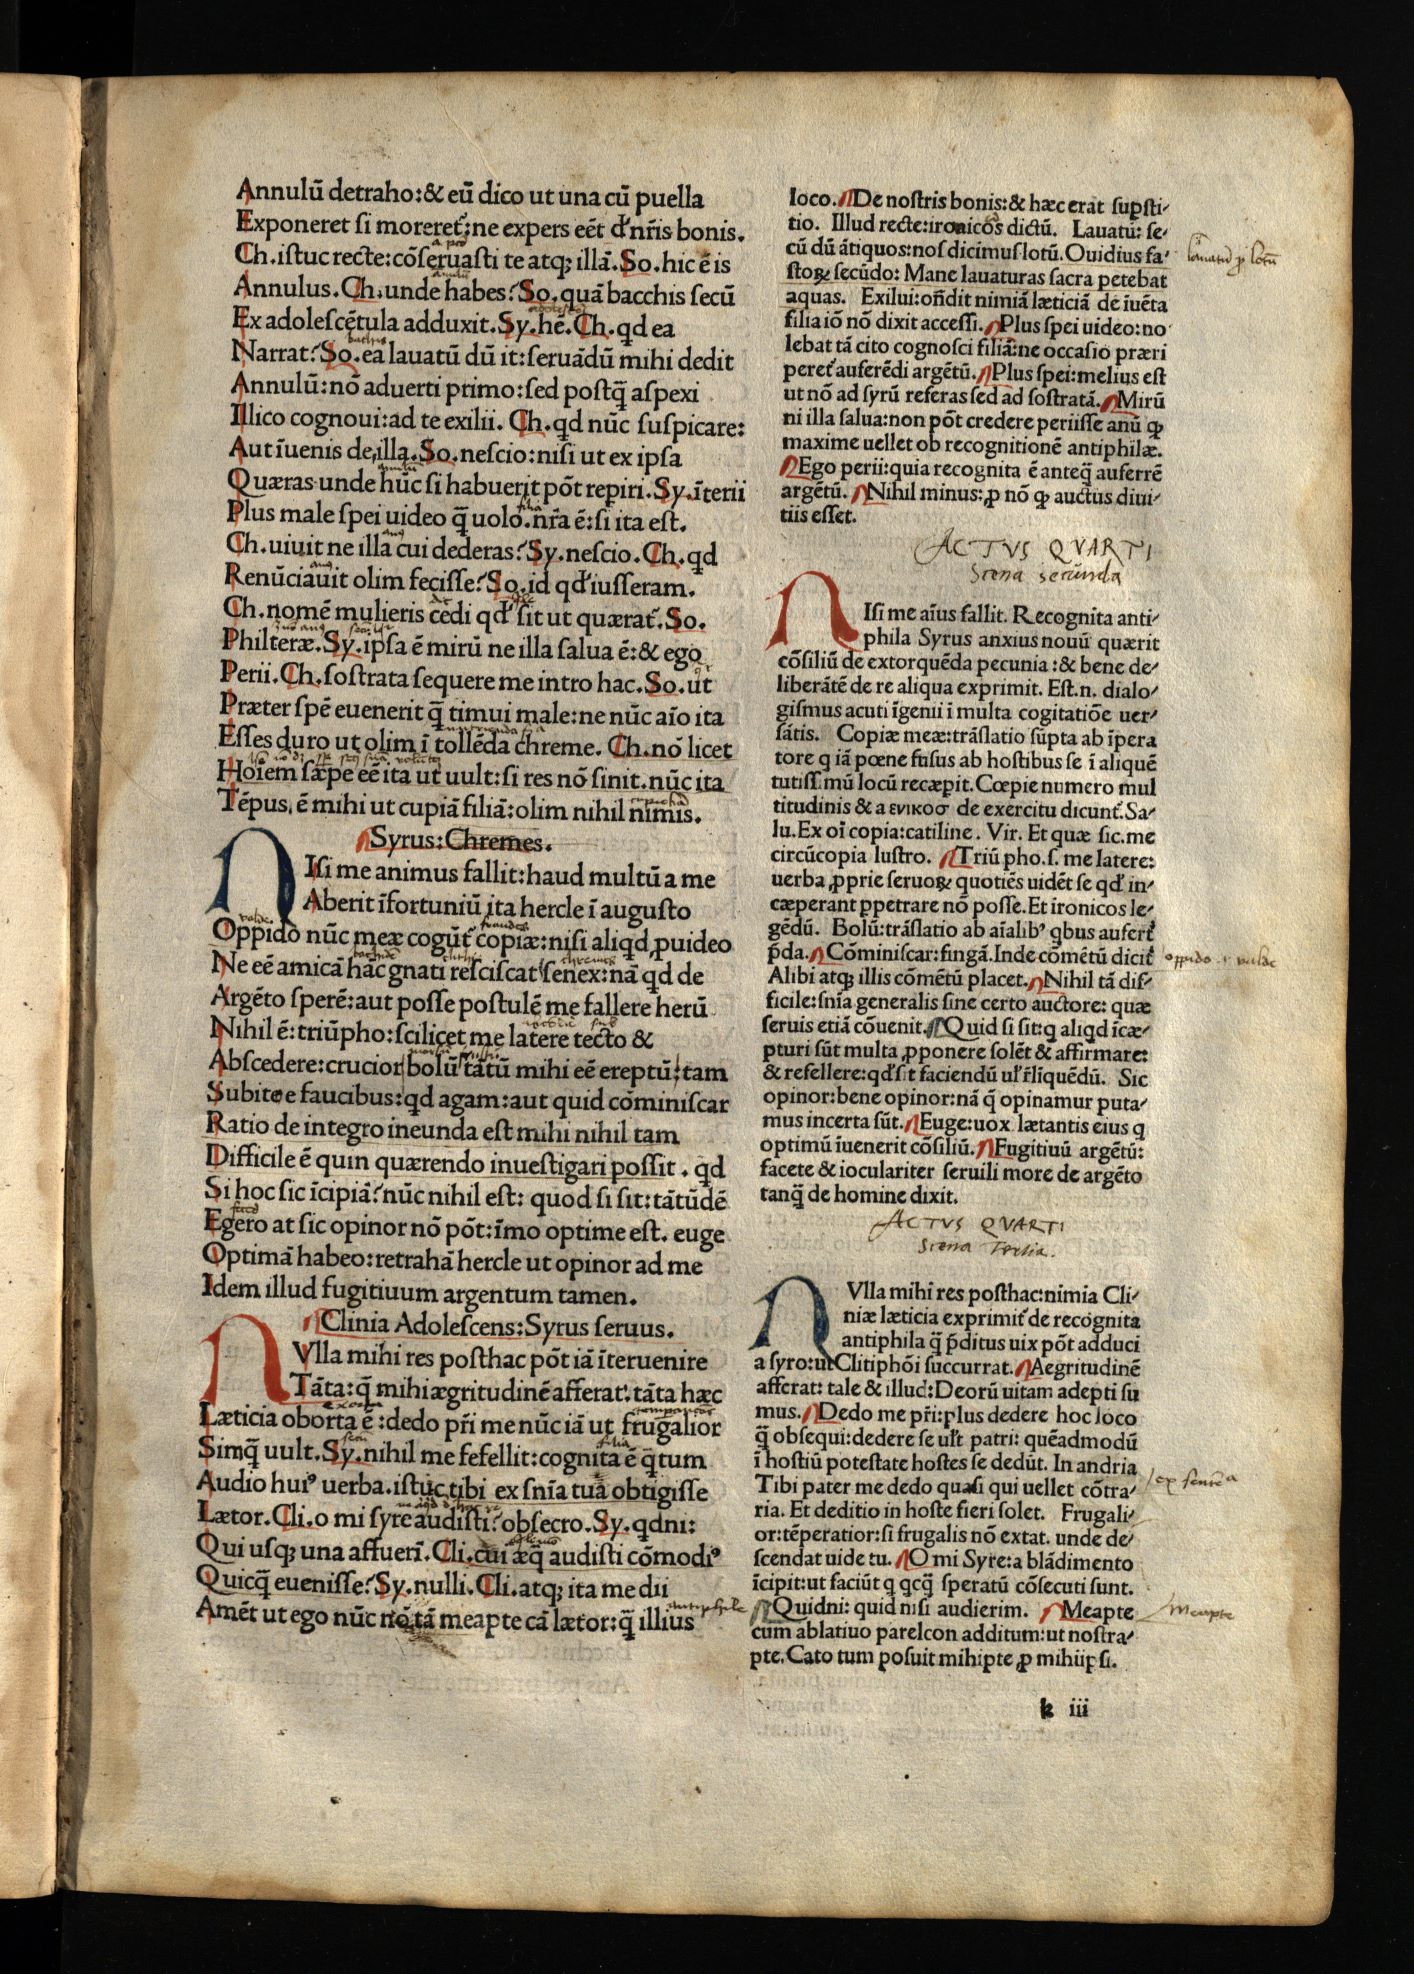 Annulū detraho:& eū dico ut una cū puella
Exponeret ſi moreret᷑:ne expers eēt đ nr̄is bonis.
Ch.iſtuc recte:cōſeruaſti te atqꝫ illā.So.hic ē is
Annulus.Ch.unde habes?So.quā bacchis ſecū
Ex adoleſcētula adduxit.Sy.hē.Ch.qd ea
Narrat?So.ea lauatū dū it:ſeruādū mihi dedit
Annulū:nō aduerti primo:ſed poſtq̄ aſpexi
Illico cognoui:ad te exilii. Ch.qd nūc ſuſpicare:
Aut īuenis de illa.So.neſcio:niſi ut ex ipſa
Quæras unde hūc ſi habuerit pōt repiri.Sy.īterii
Plus male ſpei uideo q̄ uolo.nr̄a ē:ſi ita eſt.
Ch.uiuit ne illa cui dederas?Sy.neſcio.Ch.qd
Renūciauit olim feciſſe?So.id qđ iuſſeram.
Ch.nomē mulieris cedi qđ ſit ut quærat᷑.So.
Philteræ.Sy.ipſa ē mirū ne illa ſalua ē:& ego
Perii.Ch.ſoſtrata ſequere me intro hac.So.ut
Præter ſpē euenerit q̄ timui male:ne nūc aīo ita
Eſſes duro ut olim ī tollēda chreme. Ch.nō licet
Hoīem ſæpe eē ita ut uult:ſi res nō ſinit.nūc ita
Tēpus ē mihi ut cupiā filiā:olim nihil nimis.
Syrus:Chremes.
NIſi me animus fallit:haud multū a me
Aberit īfortuniū ita hercle ī auguſto
Oppido nūc meæ cogūt᷑ copiæ:niſi aliqd ꝓuideo
Ne eē amicā hāc gnati reſciſcat ſenex:nā qd de
Argēto ſperē:aut poſſe poſtulē me fallere herū
Nihil ē:triūpho:ſcilicet me latere tecto &
Abſcedere:crucior bolū tātū mihi eē ereptū:tam
Subito e faucibus:qd agam:aut quid cōminiſcar
Ratio de integro ineunda eſt mihi nihil tam
Difficile ē quin quærendo inueſtigari poſſit . qd
Si hoc ſic īcipiā?nūc nihil eſt: quod ſi ſit:tātūdē
Egero at ſic opinor nō pōt:īmo optime eſt. euge
Optimā habeo:retrahā hercle ut opinor ad me
Idem illud fugitiuum argentum tamen.
Clinia Adoleſcens:Syrus ſeruus.
NVlla mihi res poſthac pōt iā īteruenire
Tāta:q̄ mihi ægritudinē afferat: tāta hæc
Læticia oborta ē :dedo pr̄i me nūc iā ut frugalior
Simq̄ uult.Sy.nihil me fefellit:cognita ē q̄tum
Audio huiꝰ uerba.iſtuc tibi ex ſnīa tua obtigiſſe
Lætor.Cli.o mi ſyre audiſti?obſecro.Sy.qdni:
Qui uſqꝫ una affuerī.Cli.cui æq̄ audiſti cōmodiꝰ
Quicq̄ eueniſſe?Sy.nulli.Cli.atqꝫ ita me dii
Amēt ut ego nūc nō tā meapte cā lætor:q̄ illius
loco. De noſtris bonis:& hæc erat ſupſti-
tio. Illud recte:ironicos dictū. Lauatū: ſe-
cū dū ātiquos:nos dicimus lotū.Ouidius fa-
ſtoꝝ ſecūdo: Mane lauaturas ſacra petebat
aquas. Exilui:oñdit nimiā læticiā de īuēta
filia iō nō dixit acceſſi. Plus ſpei uideo:no
lebat tā cito cognoſci filiā:ne occaſio præri
peret᷑ auferēdi argētū. Plus ſpei:melius eſt
ut nō ad ſyrū referas ſed ad ſoſtratā. Mirū
ni illa ſalua:non pōt credere periiſſe anū qꝫ
maxime uellet ob recognitionē antiphilæ.
Ego perii:quia recognita ē anteq̄ auferrē
argētū. Nihil minus:ꝓ nō qꝫ auctus diui-
tiis eſſet.
ACTVS QVARTI
Scena secūnda
NIſi me aīus fallit. Recognita anti-
phila Syrus anxius nouū quærit
cōſiliū de extorquēda pecunia :& bene de-
liberātē de re aliqua exprimit. Eſt.n. dialo-
giſmus acuti īgenii ī multa cogitatiōe uer-
ſātis. Copiæ meæ:trāſlatio ſūpta ab īpera
tore q iā pœne fuſus ab hoſtibus ſe ī aliquē
tutiſſ.mū locū recæpit. Cœpie numero mul
titudinis & a ενικοσ de exercitu dicunt᷑.Sa-
lu.Ex oī copia:catiline . Vir. Et quæ ſic.me
circūcopia luſtro. Triū pho.ſ. me latere:
uerba ꝓprie ſeruoꝝ quotiēs uidēt ſe qđ in-
cæperant ꝑpetrare nō poſſe.Et ironicos le-
gēdū. Bolū:trāſlatio ab aīalibꝰ qbus aufert᷑
p̄da. Cōminiſcar:fingā.Inde cōmētū dicit᷑
Alibi atqꝫ illis cōmētū placet. Nihil tā dif-
ficile:ſnīa generalis ſine certo auctore: quæ
ſeruis etiā cōuenit. Quid ſi ſit:q aliqd īcæ-
pturi ſūt multa ꝓponere ſolēt & affirmare:
& refellere:qđ ſit faciendū uł r̄līquēdū. Sic
opinor:bene opinor:nā q̄ opinamur puta-
mus incerta ſūt. Euge:uox lætantis eius q
optimū īuenerit cōſiliū. Fugitiuū argētū:
facete & ioculariter ſeruili more de argēto
tanq̄ de homine dixit.
ACTVS QVARTI
Scena Tertia.
NVlla mihi res poſthac:nimia Cli-
niæ læticia exprimit᷑ de recognita
antiphila q̄ p̄ditus uix pōt adduci
a ſyro:ut Clitiphōi ſuccurrat. Aegritudinē
afferat: tale & illud:Deorū uitam adepti ſu
mus. Dedo me pr̄i:plus dedere hoc loco
q̄ obſequi:dedere ſe uł t patri: quēadmodū
ī hoſtiū poteſtate hoſtes ſe dedūt. In andria
Tibi pater me dedo quaſi qui uellet cōtra-
ria. Et deditio in hoſte fieri ſolet. Frugali-
or:tēperatior:ſi frugalis nō extat. unde de-
ſcendat uide tu. O mi Syre:a blādimento
īcipit:ut faciūt q qcq̄ ſperatū cōſecuti ſunt.
Quidni: quid niſi audierim. Meapte
cum ablatiuo parelcon additum:ut noſtra-
pte.Cato tum poſuit mihipte ꝓ mihiipſi.
k iii
lauatū ꝓ lotū
oppido .i. valde
Meapte